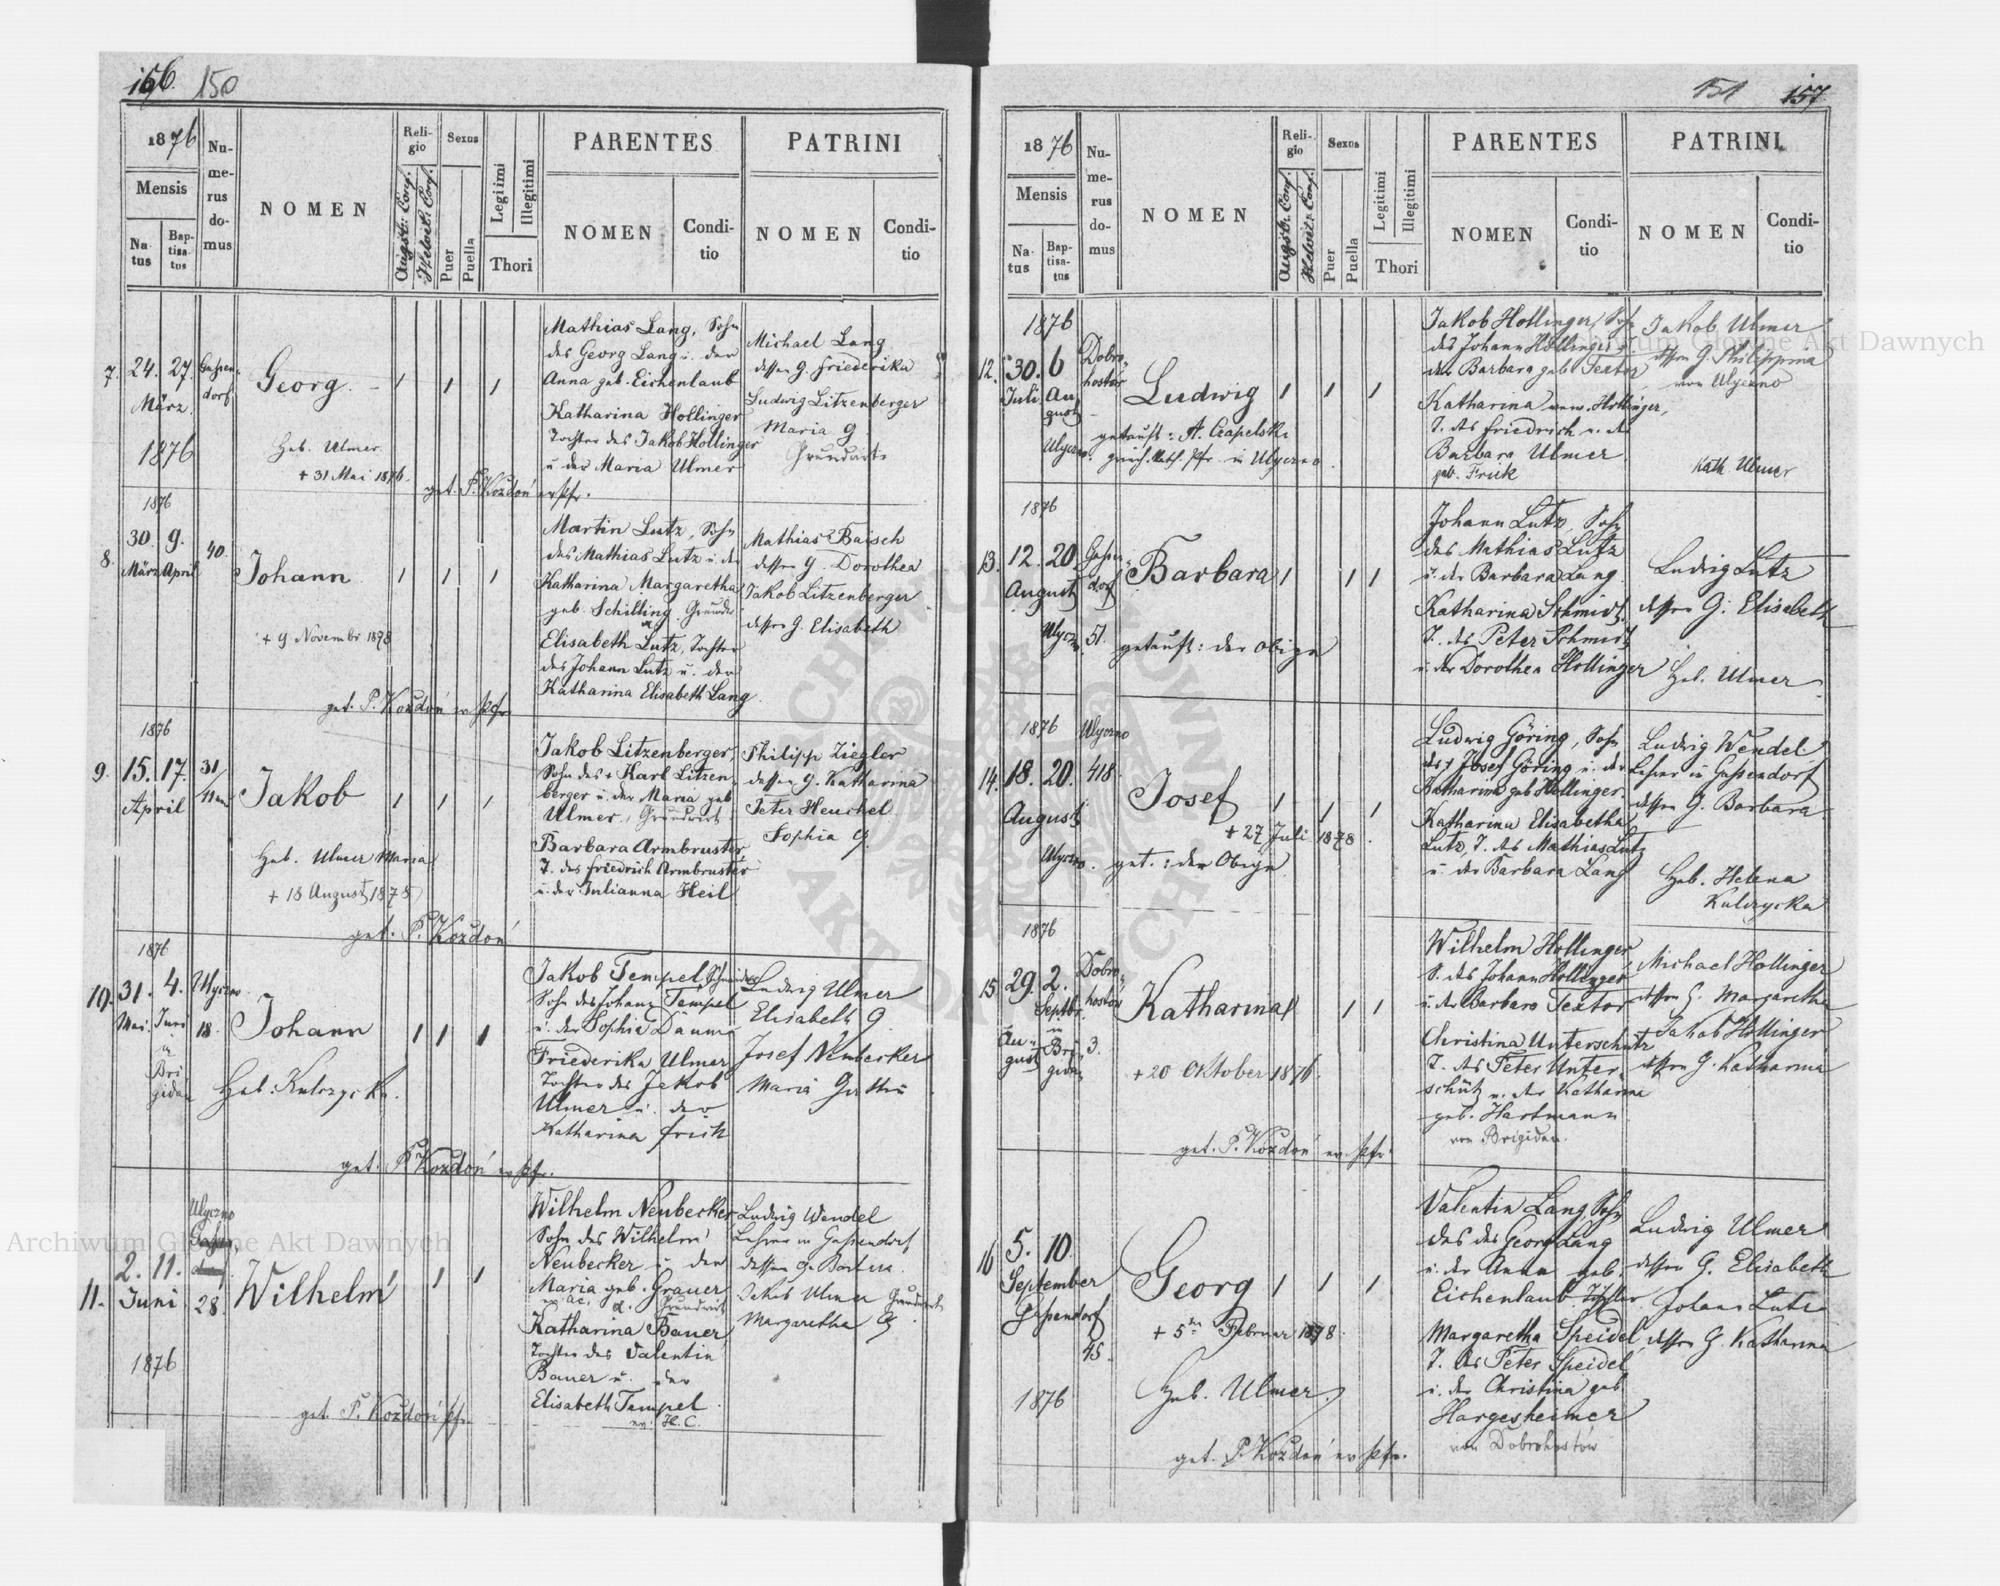 156. 150
1876
Mensis
Na-
tus
Bap-
tisa-
tus
Nu-
me-
rus
do-
mus
NOMEN
Reli-
gio
Augsb. Conf.
Helvet. Conf.
Sexus
Puer
Puella
Legiimi
Illegitimi
Thori
PARENTES
NOMEN
Condi-
tio
PATRINI
NOMEN
Condi-
tio
7. 24. 27.
März
1876
Gassen-
dorf
Georg
Heb. Ulmer
+ 31 Mai 1876.
Mathias Lang, Sohn
des Georg Lang u. der
Anna geb. Eichenlaub
Katharina Hollinger
Tochter des Jakob Hollinger
u der Maria Ulmer
Michael Lang
dessen G. Friederika
Ludwig Litzenberger
Maria G
Grundwirte
get. P. Kozdoń ev. Pfr.
1876
8. 30. 9.
März April
40.
Johann
+ 9 November 1878
Martin Lutz, Sohn
des Mathias Lutz u. der
Katharina Margaretha
geb. Schilling
Elisabeth Lutz, Tochter
des Johann Lutz u. der
Katharina Elisabeth Lang
Mathias Baisch
dessen G. Dorothea
Jakob Litzenberger
dessen G. Elisabeth
get. P. Kozdoń ev. Pfr.
1876
9. 15. 17.
April
31
Jakob
Heb. Ulmer Maria
+ 18 August 1878
Jakob Litzenberger,
Sohn des + Karl Litzen-
berger u. der Maria geb.
Ulmer, Grundwirt
Barbara Armbruster
T. des Friedrich Armbruster
u. der Julianna Heil
Philipp Ziegler
dessen G. Katharina
Peter Heuchel
Sophia G.
get. P. Kozdoń
1876
10. 31. 4.
Mai. Juni
in
Bri-
gidau
Ulyczno
18.
Johann
Heb. Kulczycka.
Jakob Tempel, Schneider
Sohn des Johann Tempel
u. der Sophia Däumo
Friederika Ulmer
Tochter des Jakob
Ulmer u. der
Katharina Frick
Ludwig Ulmer
Elisabeth G.
Josef Neubecker
Maria Gattin
get. P. Kozdoń ev. Pfr.
11. 2. 11.
Juni
1876
Ulyczno
28
Wilhelm
Wilhelm Neubecker
Sohn des Wilhelm
Neubecker u. der
Maria geb. Grauer
Grundwirt
Katharina Bauer
Tochter des Valentin
Bauer u. der
Elisabeth Tempel
ev. H. C.
Ludwig Wendel
Lehrer in Gassendorf
dessen G. Barbara
Jakob Ulmer Grundwirt
Margaretha G
get. P. Kozdoń Pfr.
151 157
1876
Mensis
Na-
tus
Bap-
tisa-
tus
Nu-
me-
rus
do-
mus
NOMEN
Reli-
gio
Augsb. Conf.
Helvet. Conf.
Sexus
Puer
Puella
Legitimi
Illegitimi
Thori
PARENTES
NOMEN
Condi-
tio
PATRINI
NOMEN
Condi-
tio
1876
12. 30. 6
Juli. Au-
gust
Ulyczno.
Dobro-
hostów
Ludwig
getauft: A. Czapelski
griech. kath. Pfr. in Ulyczno.
Jakob Hollinger, Sohn
des Johann Hollinger u.
der Barbara geb Textor
Katharina verw. Hollinger,
T. des Friedrich u. der
Barbara Ulmer
geb. Frick
Jakob Ulmer
dessen G. Philippina
von Ulyczno
Kath. Ulmer
1876
13. 12. 20
August
Ulyczno
Gassen-
dorf
51.
Barbara
getauft: der Obige
Johann Lutz, Sohn
des Mathias Lutz
u. der Barbara Lang.
Katharina Schmidt,
T. des Peter Schmidt
u. der Dorothea Hollinger
Ludwig Lutz
dessen G. Elisabeth
Heb. Ulmer
1876
14. 18. 20.
August
Ulyczno.
Ulyczno
418.
Josef
+ 27 Juli 1878.
get.: der Obige
Ludwig Göring, Sohn
des + Josef Göring u. der
Katharina geb Hollinger.
Katharina Elisabetha
Lutz, T. des Mathias Lutz
u. der Barbara Lang
Ludwig Wendel
Lehrer in Gassendorf
dessen G. Barbara.
Heb. Helena
Kulczycka
1876
15. 29. 2.
Au-
gust
Septbr.
in
Bri-
gidau
Dobro-
hostów
3.
Katharina
+ 20 Oktober 1876.
Wilhelm Hollinger
S. des Johann Hollinger
u. der Barbara Textor
Christina Unterschütz
T. des Peter Unter-
schütz u. der Katharina
geb. Hartmann
von Brigidau.
Michael Hollinger
dessen G. Margaretha
Jakob Hollinger
dessen G. Katharina
get. P. Kozdoń ev. Pfr.
16 5. 10.
September
Gassendorf
45.
1876
Georg
+ 5ten Februar 1878.
Heb. Ulmer.
Valentin Lang, Sohn
des des Georg Lang
u. der Anna geb.
Eichenlaub
Margaretha Speidel,
T. des Peter Speidel
u. der Christina geb.
Hargesheimer
von Dobrohostów
Ludwig Ulmer
dessen G. Elisabeth
Johann Lutz
dessen G. Katharina
get. P. Kozdoń ev. Pfr.
Archiwum Główne Akt Dawnych
Archiwum Główne Akt Dawnych